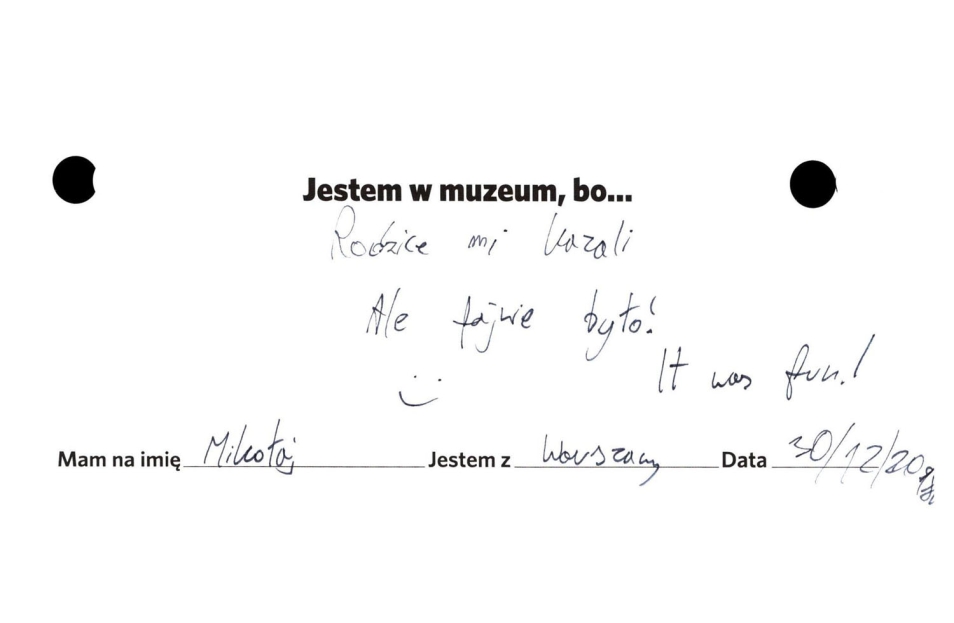 Jestem w muzeum, bo...
Rodzice mi kazali
Ale fajnie było!
It was fun!
Mam na imię Mikołaj Jestem z Warszawy Data 30/12/20